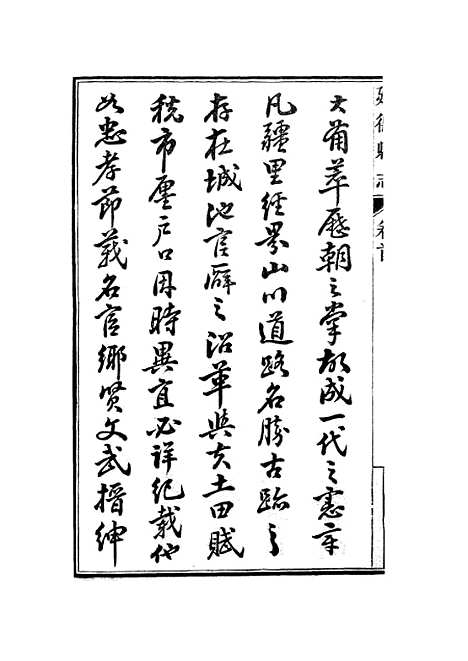 建德縣志 卷首
大備萃歷朝之掌故成一代之憲章
凡疆里經界山川道路名勝古蹟之
存在城池官廨之沿革與夫土田賦
稅市廛戶口因時異宜必詳紀載他
如忠孝節義名宦鄉賢文武搢紳